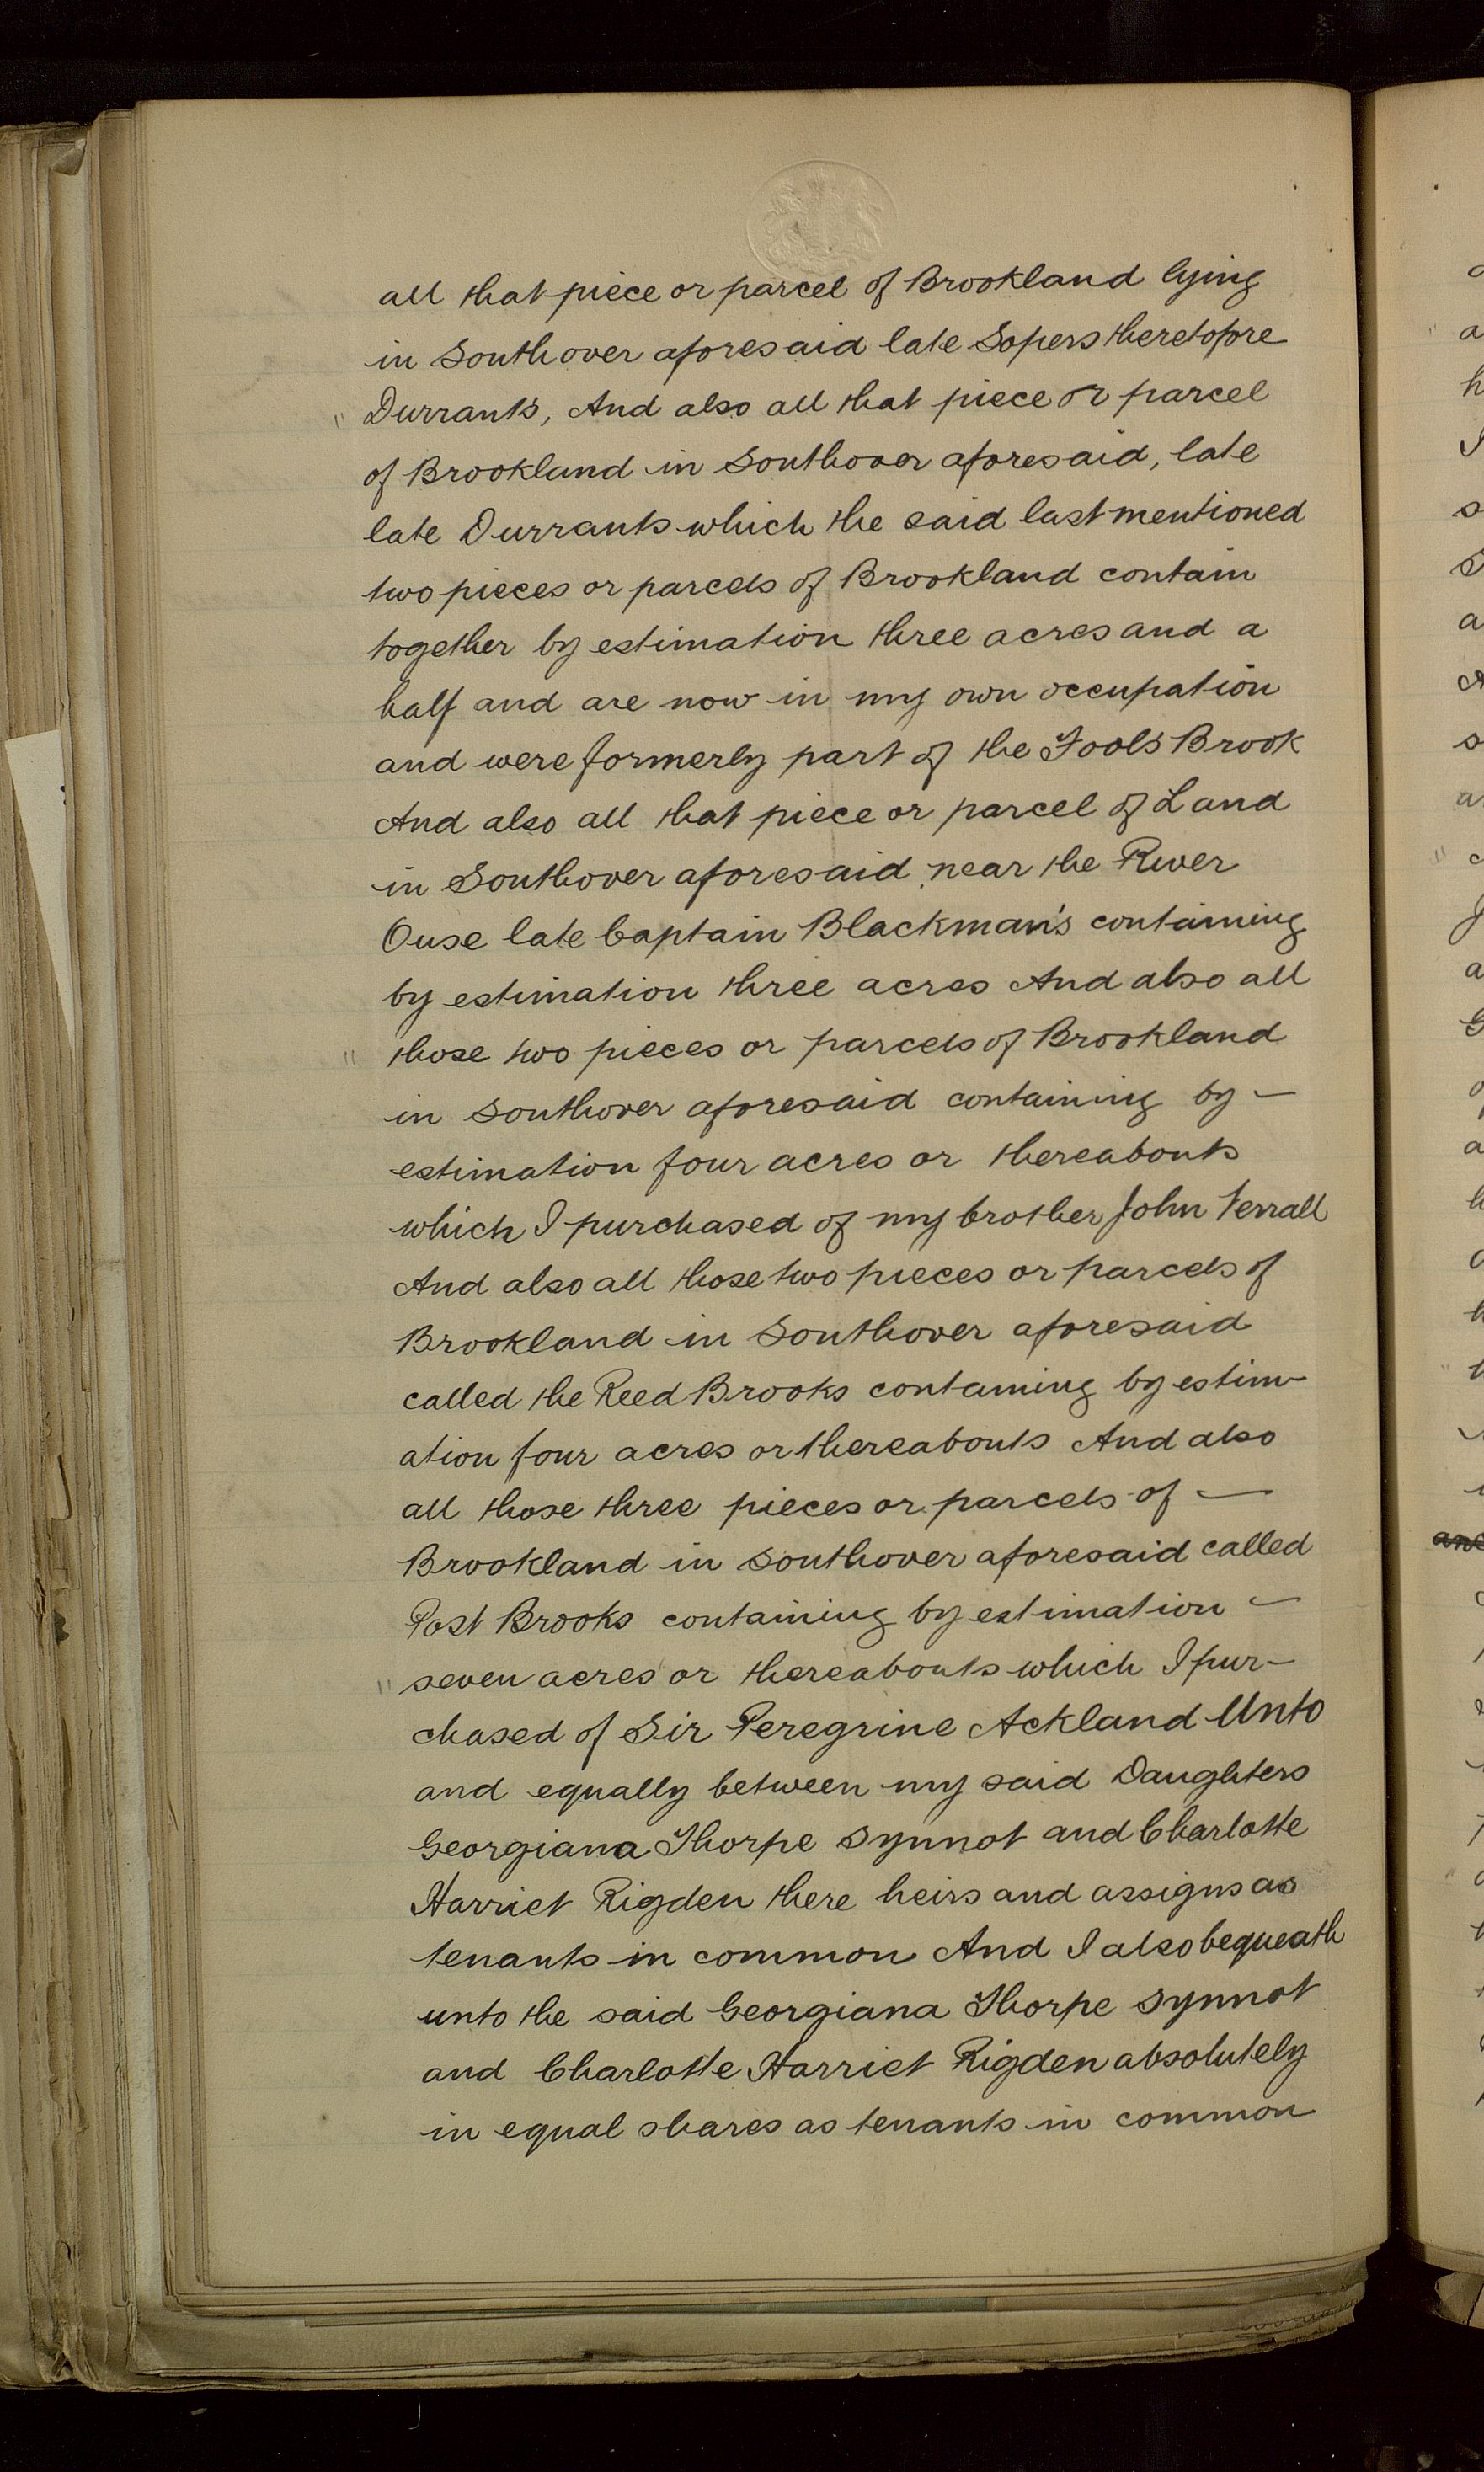 all that piece or parcel of Brookland lying
in Southover aforesaid late Sopers theretofore
" Durrants, And also all that piece or parcel
of Brookland in Southover aforesaid, late
late Durrants which the said last mentioned
two pieces or parcels of Brookland contain
together by estimation three acres and a
half and are now in my own occupation
and were formerly part of the Fools Brook
And also all that piece or parcel of Land
in Southover aforesaid near the River
Ouse late Captain Blackman's containing
by estimation three acres And also all
" those two pieces or parcels of Brookland
in Southover aforesaid containing by —
estimation four acres or thereabouts
which I purchased of my brother John Verrall
And also all those two pieces or parcels of
Brookland in Southover aforesaid
called the Reed Brooks containing by estim-
ation four acres or thereabouts And also
all those three pieces or parcels of —
Brookland in Southover aforesaid called
Post Brooks containing by estimation —
" seven acres or thereabouts which I pur-
chased of Sir Peregrine Ackland Unto
and equally between my said Daughters
Georgiana Thorpe Synnot and Charlotte
Harriet Rigden there heirs and assigns as
tenants in common And I also bequeath
unto the said Georgiana Thorpe Synnot
and Charlotte Harriet Rigden absolutely
in equal shares as tenants in common